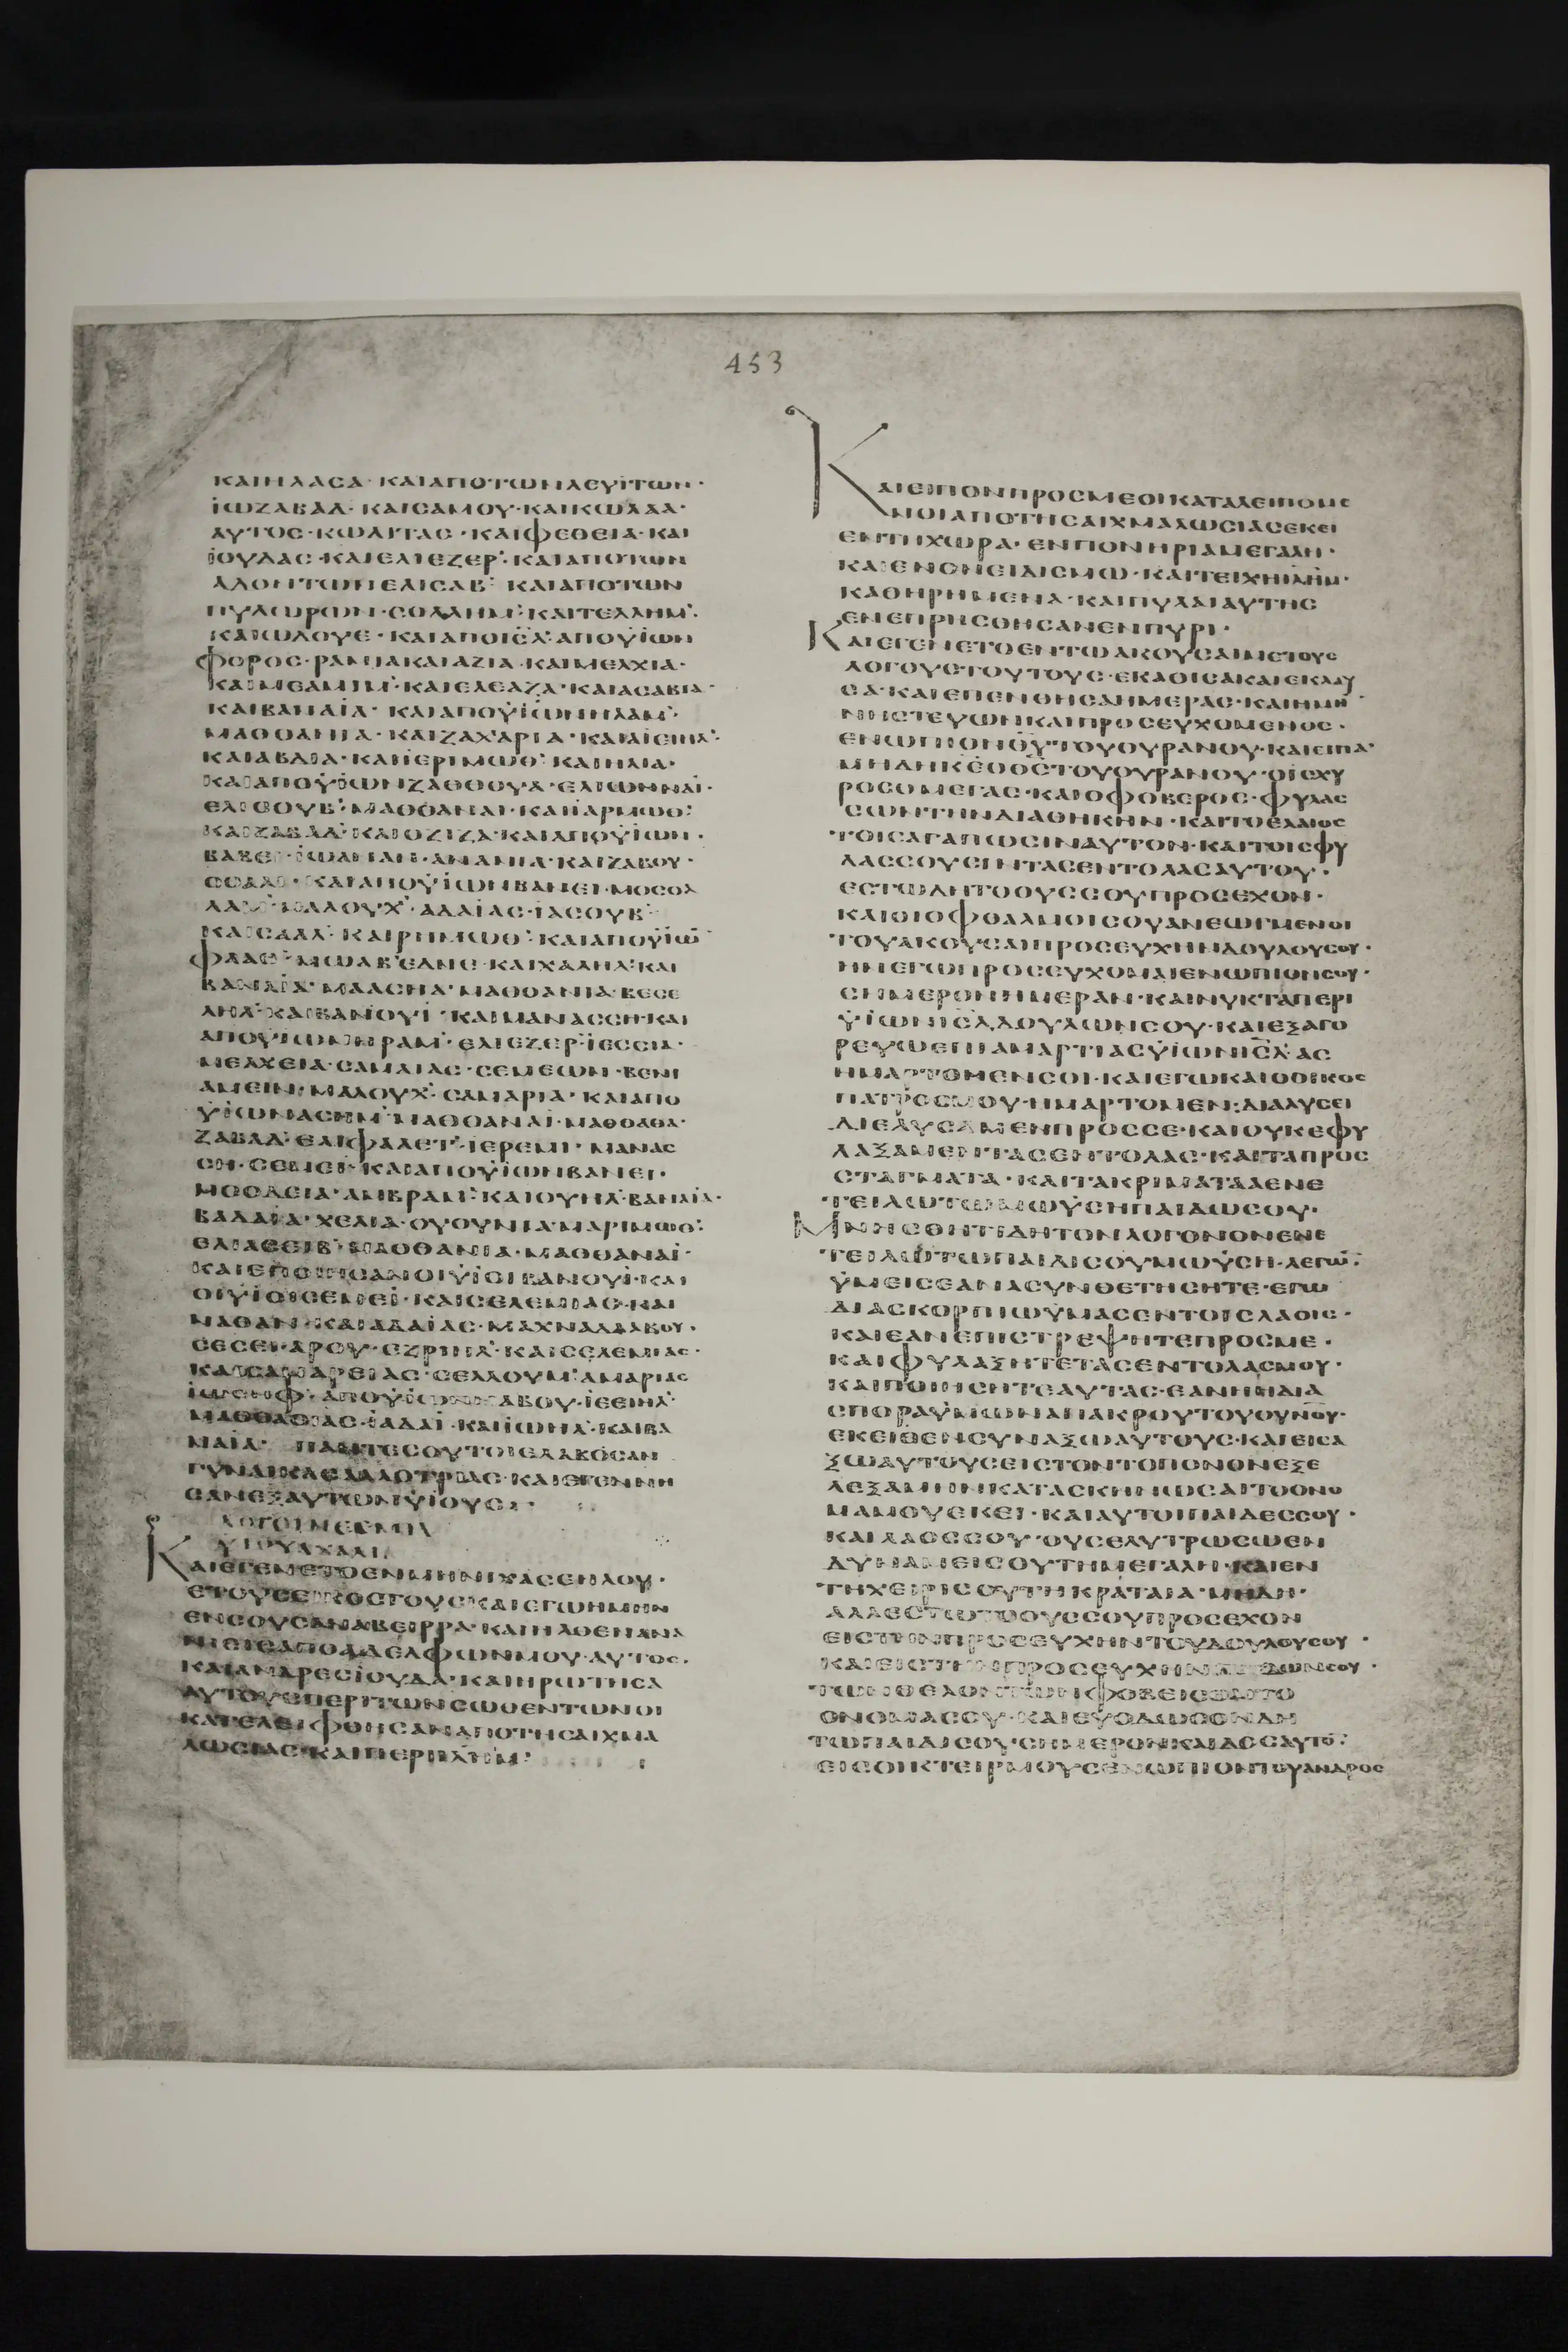 453
ΚΑΙΗΛΑCΑ· ΚΑΙΑΠΟΤΩΝΛΕΥΪΤΩΝ·
ΪΩΖΑΒΑΔ· ΚΑΙCΑΜΟΥ·ΚΑΙΚΩΛΑΑ·
ΑΥΤΟC·ΚΩΛΙΤΑC·ΚΑΙΦΕΘΕΙΑ·ΚΑΙ
ΪΟΥΔΑC·ΚΑΙΕΛΙΕΖΕΡ· ΚΑΙΑΠΟΤΩΝ
ΑΔΟΝΤΩΝΕΛΙCΑΒ· ΚΑΙΑΠΟΤΩΝ
ΠΥΛΩΡΩΝ·CΟΛΛΗΜ·ΚΑΙΤΕΛΛΗΜ·
ΚΑΙΩΔΟΥΕ·ΚΑΙΑΠΟΙΗΛ·ΑΠΟΥΪΩΝ
ΦΟΡΟC·ΡΑΜΙΑΚΑΙΑΖΙΑ·ΚΑΙΜΕΛΧΙΑ·
ΚΑΙΜΕΑΜΙΜ·ΚΑΙΕΛΕΑΖΑ·ΚΑΙΑCΑΒΙΑ·
ΚΑΙΒΑΝΑΪΑ· ΚΑΙΑΠΟΥΪΩΝΗΛΑΜ·
ΜΑΘΘΑΝΙΑ·ΚΑΙΖΑΧΑΡΙΑ·ΚΑΙΑΪΕΙΗΛ·
ΚΑΙΑΒΔΙΑ·ΚΑΙΙΕΡΙΜΩΘ·ΚΑΙΗΛΙΑ·
ΚΑΙΑΠΟΥΪΩΝΖΑΘΘΟΥΑ·ΕΛΙΩΝΝΑΪ·
ΕΛΙCΟΥΒ·ΜΑΘΘΑΝΑΙ·ΚΑΙΙΑΡΜΩΘ·
ΚΑΙΖΑΒΑΔ·ΚΑΙΟΖΙΖΑ·ΚΑΙΑΠΟΥΪΩΝ·
ΒΑΒΕΙ·ΪΩΑΝΑΝ·ΑΝΑΝΙΑ·ΚΑΙΖΑΒΟΥ·
ΚΑΙΑΠΟΥΪΩΝΒΑΝΕΙ·ΜΟCΟΛ
ΛΑΜ·ΜΑΛΟΥΧ·ΑΔΑΪΑC·ΪΑCΟΥΒ·
ΚΑΙCΑΑΛ·ΚΑΙΡΗΜΩΘ·ΚΑΙΑΠΟΥΪΩ
ΦΑΑΘ·ΜΩΑΒ·ΕΔΝΕ·ΚΑΙΧΑΛΗΛ·ΚΑΙ
ΒΑΝΑΪΑ·ΜΑΑCΗΑ·ΜΑΘΘΑΝΙΑ·ΒΕCΕ
ΛΗΛ·ΚΑΙΒΑΝΟΥΪ·ΚΑΙΜΑΝΑCCΗ·ΚΑΙ
ΑΠΟΥΪΩΝΗΡΑΜ·ΕΛΙΕΖΕΡ·ΪΕCCΙΑ·
ΜΕΛΧΕΙΑ·CΑΜΑΙΑC·CΕΜΕΩΝ·ΒΕΝΙ
ΑΜΕΙΝ·ΜΑΛΟΥΧ·CΑΜΑΡΙΑ· ΚΑΙΑΠΟ
ΥΪΩΝΑCΗΜ·ΜΑΘΘΑΝΑΙ·ΜΑΘΘΑΘΑ·
ΖΑΒΑΔ·ΕΛΙΦΑΛΕΤ·ΙΕΡΕΜΙ·ΜΑΝΑC
CΗ·CΕΜΕΙ·ΚΑΙΑΠΟΥΪΩΝΒΑΝΕΙ·
ΜΟΟΔΕΙΑ·ΑΜΒΡΑΜ·ΚΑΙΟΥΗΛ·ΒΑΝΑΪΑ·
ΒΑΔΑΪΑ·ΧΕΛΙΑ·ΟΥΟΥΝΙΑ·ΜΑΡΙΜΩΘ·
ΕΛΙΑCΕΙΒ·ΜΑΘΘΑΝΙΑ·ΜΑΘΘΑΝΑΪ·
ΚΑΙΕΠΟΙΗCΑΝΟΙΥΪΟΙΒΑΝΟΥΪ·ΚΑΙ
ΟΙΥΪΟΙCΕΜΕΪ·ΚΑΙCΕΛΕΜΙΑC·ΚΑΙ
ΝΑΘΑΝ·ΚΑΙΑΔΑΪΑC·ΜΑΧΝΑΔΑΑΒΟΥ·
CΕCΕΙ·ΑΡΟΥ·ΕΖΡΙΗΛ·ΚΑΙCΕΛΕΜΙΑC·
ΚΑΙCΑΜΑΡΕΙΑC·CΕΛΛΟΥΜ·ΑΜΑΡΙΑC
ΪΩCΗΦ·ΑΠΟΥΪΩΝΝΑΒΟΥ·ΪΕΕΙΗΛ·
ΜΑΘΘΑΘΙΑC·ΪΑΔΑΪ·ΚΑΙΪΩΗΛ·ΚΑΙΒΑ
ΝΑΪΑ· ΠΑΝΤΕCΟΥΤΟΙΕΛΑΒΟCΑΝ
ΓΥΝΑΙΚΑCΑΛΛΟΤΡΙΑC·ΚΑΙΕΓΕΝΝΗ
CΑΝΕΞΑΥΤΩΝΥΪΟΥC·
ΛΟΓΟΙΝΕΕΜΙΑ
ΥΙΟΥΑΧΑΛΙΑ
ΚΑΙΕΓΕΝΕΤΟΕΝΜΗΝΙΧΑCΕΗΛΟΥ·
ΕΤΟΥCΕΙΚΟCΤΟΥC·ΚΑΙΕΓΩΗΜΗΝ
ΕΝCΟΥCΑΝΑΒΕΙΡΡΑ·ΚΑΙΗΛΘΕΝΑΝΑ
ΝΙΕΙCΑΠΟΑΔΕΛΦΩΝΜΟΥ·ΑΥΤΟC·
ΚΑΙΑΝΔΡΕCΪΟΥΔΑ·ΚΑΙΗΡΩΤΗCΑ
ΑΥΤΟΥCΠΕΡΙΤΩΝCΩΘΕΝΤΩΝΟΙ
ΚΑΤΕΛΕΙΦΘΗCΑΝΑΠΟΤΗCΑΙΧΜΑ
ΛΩCΙΑC·ΚΑΙΠΕΡΙΙΛΗΜ·
ΚΑΙΕΙΠΟΝΠΡΟCΜΕΟΙΚΑΤΑΛΕΙΠΟΜΕ
ΝΟΙΑΠΟΤΗCΑΙΧΜΑΛΩCΙΑCΕΚΕΙ
ΕΝΤΗΧΩΡΑ·ΕΝΠΟΝΗΡΙΑΜΕΓΑΛΗ·
ΚΑΙΕΝΟΝΕΙΔΙCΜΩ·ΚΑΙΤΕΙΧΗΙΛΗΜ·
ΚΑΘΗΡΗΜΕΝΑ·ΚΑΙΠΥΛΑΙΑΥΤΗC
ΕΝΕΠΡΗCΘΗCΑΝΕΝΠΥΡΙ·
ΚΑΙΕΓΕΝΕΤΟΕΝΤΩΑΚΟΥCΑΙΜΕΤΟΥC
ΛΟΓΟΥCΤΟΥΤΟΥC·ΕΚΑΘΙCΑΚΑΙΕΚΛΑΥ
CΑ·ΚΑΙΕΠΕΝΘΗCΑΗΜΕΡΑC·ΚΑΙΗΜΗ
ΝΗCΤΕΥΩΝΚΑΙΠΡΟCΕΥΧΟΜΕΝΟC·
ΕΝΩΠΙΟΝΘΥΤΟΥΟΥΡΑΝΟΥ·ΚΑΙΕΙΠΑ·
ΜΗΔΗΚΕΟΘCΤΟΥΟΥΡΑΝΟΥ·ΟΪCΧΥ
ΡΟCΟΜΕΓΑC·ΚΑΙΟΦΟΒΕΡΟC·ΦΥΛΑC
CΩΝΤΗΝΔΙΑΘΗΚΗΝ·ΚΑΙΤΟΕΛΑΙΟC
ΤΟΙCΑΓΑΠΩCΙΝΑΥΤΟΝ·ΚΑΙΤΟΙCΦΥ
ΛΑCCΟΥCΙΝΤΑCΕΝΤΟΛΑCΑΥΤΟΥ·
ΕCΤΩΔΗΤΟΟΥCCΟΥΠΡΟCΕΧΟΝ·
ΚΑΙΟΙΟΦΘΑΛΜΟΙCΟΥΑΝΕΩΓΜΕΝΟΙ
ΤΟΥΑΚΟΥCΑΙΠΡΟCΕΥΧΗΝΔΟΥΛΟΥCΟΥ·
ΗΝΕΓΩΠΡΟCΕΥΧΟΜΑΙΕΝΩΠΙΟΝCΟΥ·
CΗΜΕΡΟΝΗΜΕΡΑΝ·ΚΑΙΝΥΚΤΑΠΕΡΙ
ΥΪΩΝΙCΛΔΟΥΛΩΝCΟΥ·ΚΑΙΕΞΑΓΟ
ΡΕΥΩΕΠΙΑΜΑΡΤΙΑCΥΪΩΝΙCΛ·ΑC
ΗΜΑΡΤΟΜΕΝCΟΙ·ΚΑΙΕΓΩΚΑΙΟΟΙΚΟC
ΠΑΤΡΟCΜΟΥ·ΗΜΑΡΤΟΜΕΝ:ΔΙΑΛΥCΕΙ
ΔΙΕΛΥCΑΜΕΝΠΡΟCCΕ·ΚΑΙΟΥΚΕΦΥ
ΛΑΞΑΜΕΝΤΑCΕΝΤΟΛΑC·ΚΑΙΤΑΠΡΟC
CΤΑΓΜΑΤΑ·ΚΑΙΤΑΚΡΙΜΑΤΑΑΕΝΕ
ΤΕΙΛΩΤΩΜΩΥCΗΠΑΙΔΙΩCΟΥ·
ΜΝΗCΘΗΤΙΔΗΤΟΝΛΟΓΟΝΟΝΕΝΕ
ΤΕΙΛΩΤΩΠΑΙΔΙCΟΥΜΩΥCΗ·ΛΕΓΩ·
ΥΜΕΙCΕΑΝΑCΥΝΘΕΤΗCΗΤΕ·ΕΓΩ
ΔΙΑCΚΟΡΠΙΩΥΜΑCΕΝΤΟΙCΛΑΟΙC·
ΚΑΙΕΑΝΕΠΙCΤΡΕΨΗΤΕΠΡΟCΜΕ·
ΚΑΙΦΥΛΑΞΗΤΕΤΑCΕΝΤΟΛΑCΜΟΥ·
ΚΑΙΠΟΙΗCΗΤΕΑΥΤΑC·ΕΑΝΗΗΔΙΑ
CΠΟΡΑΥΜΩΝΑΠΑΚΡΟΥΤΟΥΟΥΝΟΥ·
ΕΚΕΙΘΕΝCΥΝΑΞΩΑΥΤΟΥC·ΚΑΙΕΙCΑ
ΞΩΑΥΤΟΥCΕΙCΤΟΝΤΟΠΟΝΟΝΕΞΕ
ΛΕΞΑΜΗΝΚΑΤΑCΚΗΝΩCΑΙΤΟΟΝΟ
ΜΑΜΟΥΕΚΕΙ·ΚΑΙΑΥΤΟΙΠΑΙΔΕCCΟΥ·
ΚΑΙΛΑΟCCΟΥ·ΟΥCΕΛΥΤΡΩCΩΕΝ
ΔΥΝΑΜΕΙCΟΥΤΗΜΕΓΑΛΗ·ΚΑΙΕΝ
ΤΗΧΕΙΡΙCΟΥΤΗΚΡΑΤΑΙΑ·ΜΗΔΗ·
ΑΛΛΕCΤΩΤΟΟΥCCΟΥΠΡΟCΕΧΟΝ
ΕΙCΤΗΝΠΡΟCΕΥΧΗΝΤΟΥΔΟΥΛΟΥCΟΥ·
ΚΑΙΕΙCΤΗΝΠΡΟCΕΥΧΗΝΠΑΙΔΩΝCΟΥ·
ΤΩΝΘΕΛΟΝΤΩΝΦΟΒΕΙCΘΑΙΤΟ
ΟΝΟΜΑCΟΥ·ΚΑΙΕΥΟΔΩCΟΝΔΗ
ΤΩΠΑΙΔΙCΟΥ·CΗΜΕΡΟΝΚΑΙΔΟCΑΥΤΟ·
ΕΙCΟΙΚΤΕΙΡΜΟΥCΕΝΩΠΙΟΝΤΟΥΑΝΔΡΟC